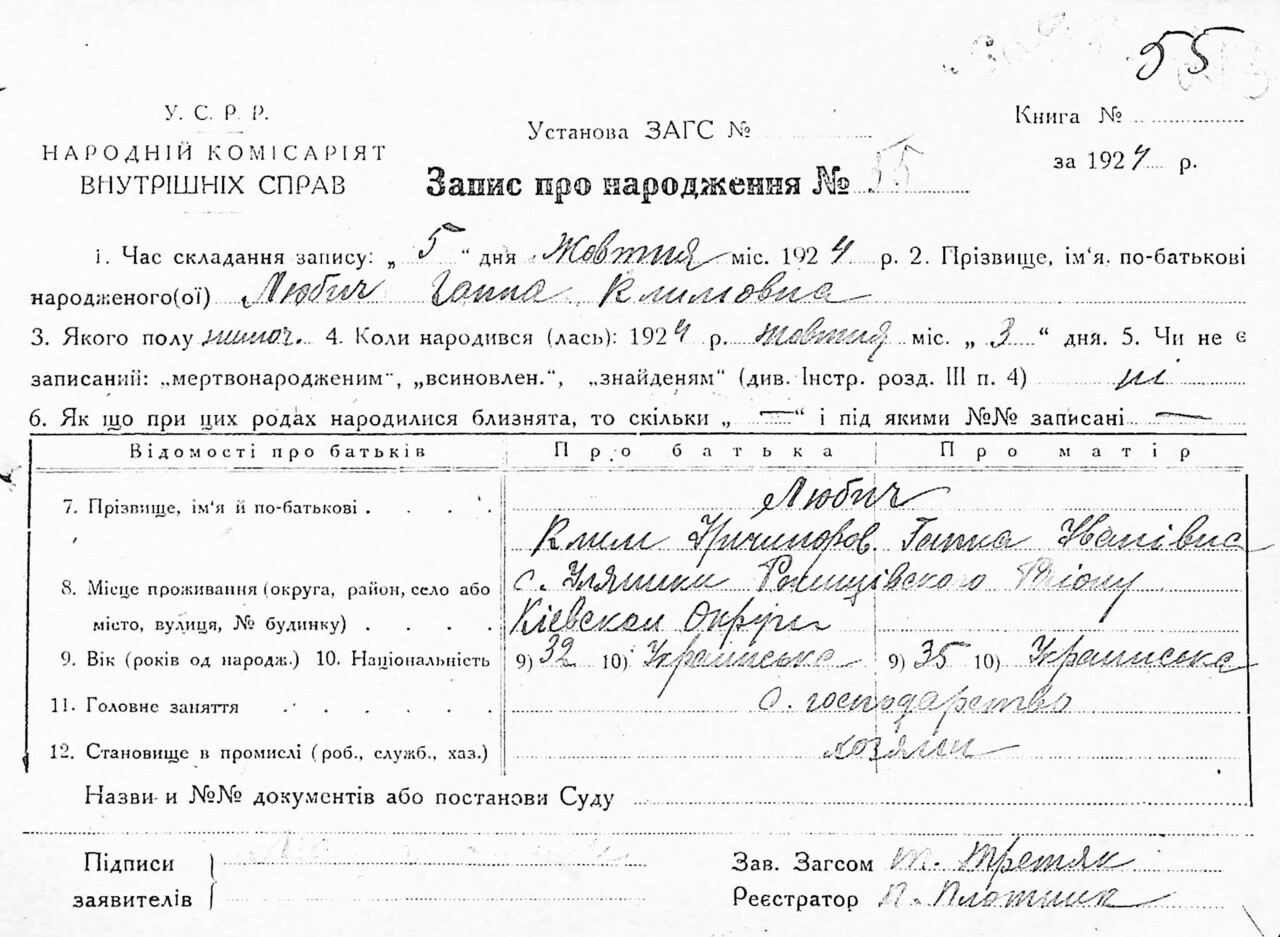 55
У. С. Р. Р.
НАРОДНІЙ КОМІСАРІЯТ
ВНУТРІШНІХ СПРАВ
Установа ЗАГС №
Запис про народження № 55
Книга №
за 1924 р.
1. Час складання запису: „ 5 “ дня Жовтня міс. 1924 р. 2. Прізвище, ім'я, по-батькові
народженого(ої) Любич Ганна Климовна
3. Якого полу жіноч. 4. Коли народився (лась): 1924 р. жовтня міс. „ 3 “ дня. 5. Чи не є
записаний: „мертвонародженим“, „всиновлен.“, „знайденям“ (див. Інстр. розд. III п. 4) ні
6. Як що при цих родах народилися близнята, то скільки „ — “ і під якими №№ записані —
Відомості про батьків Про батька Про матір
Любич
7. Прізвище, ім'я й по-батькові . . . .
Клим Ничипоров. Ганна Іванівна
8. Місце проживання (округа, район, село або
с. Уляники Ржищівского Району
місто, вулиця, № будинку) . . . .
Кіевскои Округи
9. Вік (років од народж.) 10. Національність 9) 32 10) Украінська 9) 35 10) Украінська
11. Головне заняття . . . . . . с. господарство
12. Становище в промислі (роб., служб., хаз.) хозяин
Назви и №№ документів або постанови Суду
Підписи
заявителів
Зав. Загсом Т. Третяк
Реєстратор П. Плотник